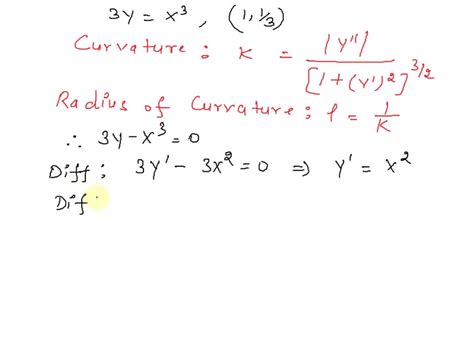 3Y = X³ , (1, 1/3)
Curvature : K = |Y''| / [1 + (Y')²]^3/2
Radius of Curvature : ρ = 1/K
∴ 3Y - X³ = 0
Diff : 3Y' - 3X² = 0 ⇒ Y' = X²
Dif